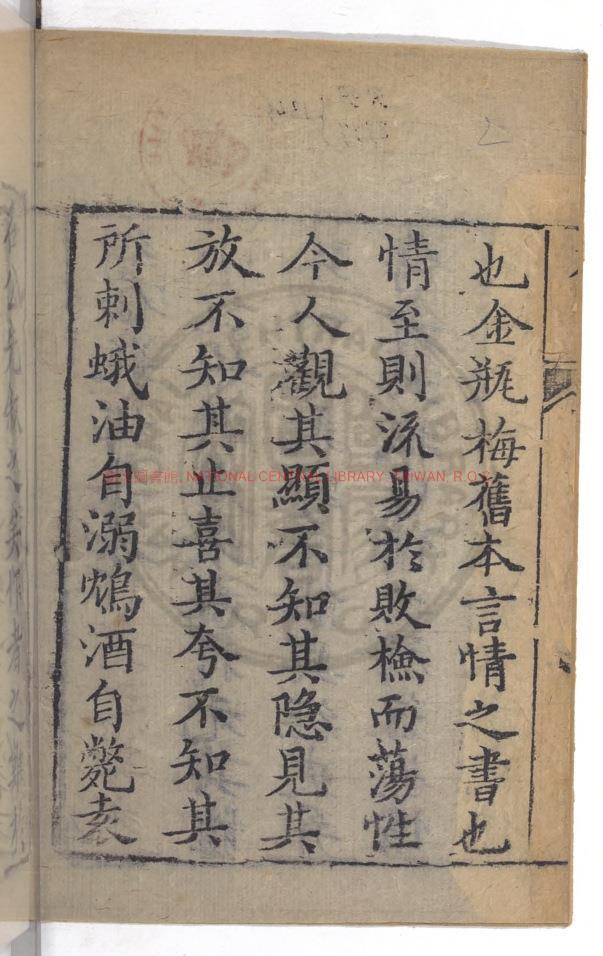 也金瓶梅舊本言情之書也
情至則流易於敗檢而蕩性
今人觀其顯不知其隐見其
放不知其止喜其夸不知其
所刺蛾油自溺鴆酒自斃袁
國家圖書館, NATIONAL CENTRAL LIBRARY, TAIWAN, R.O.C.